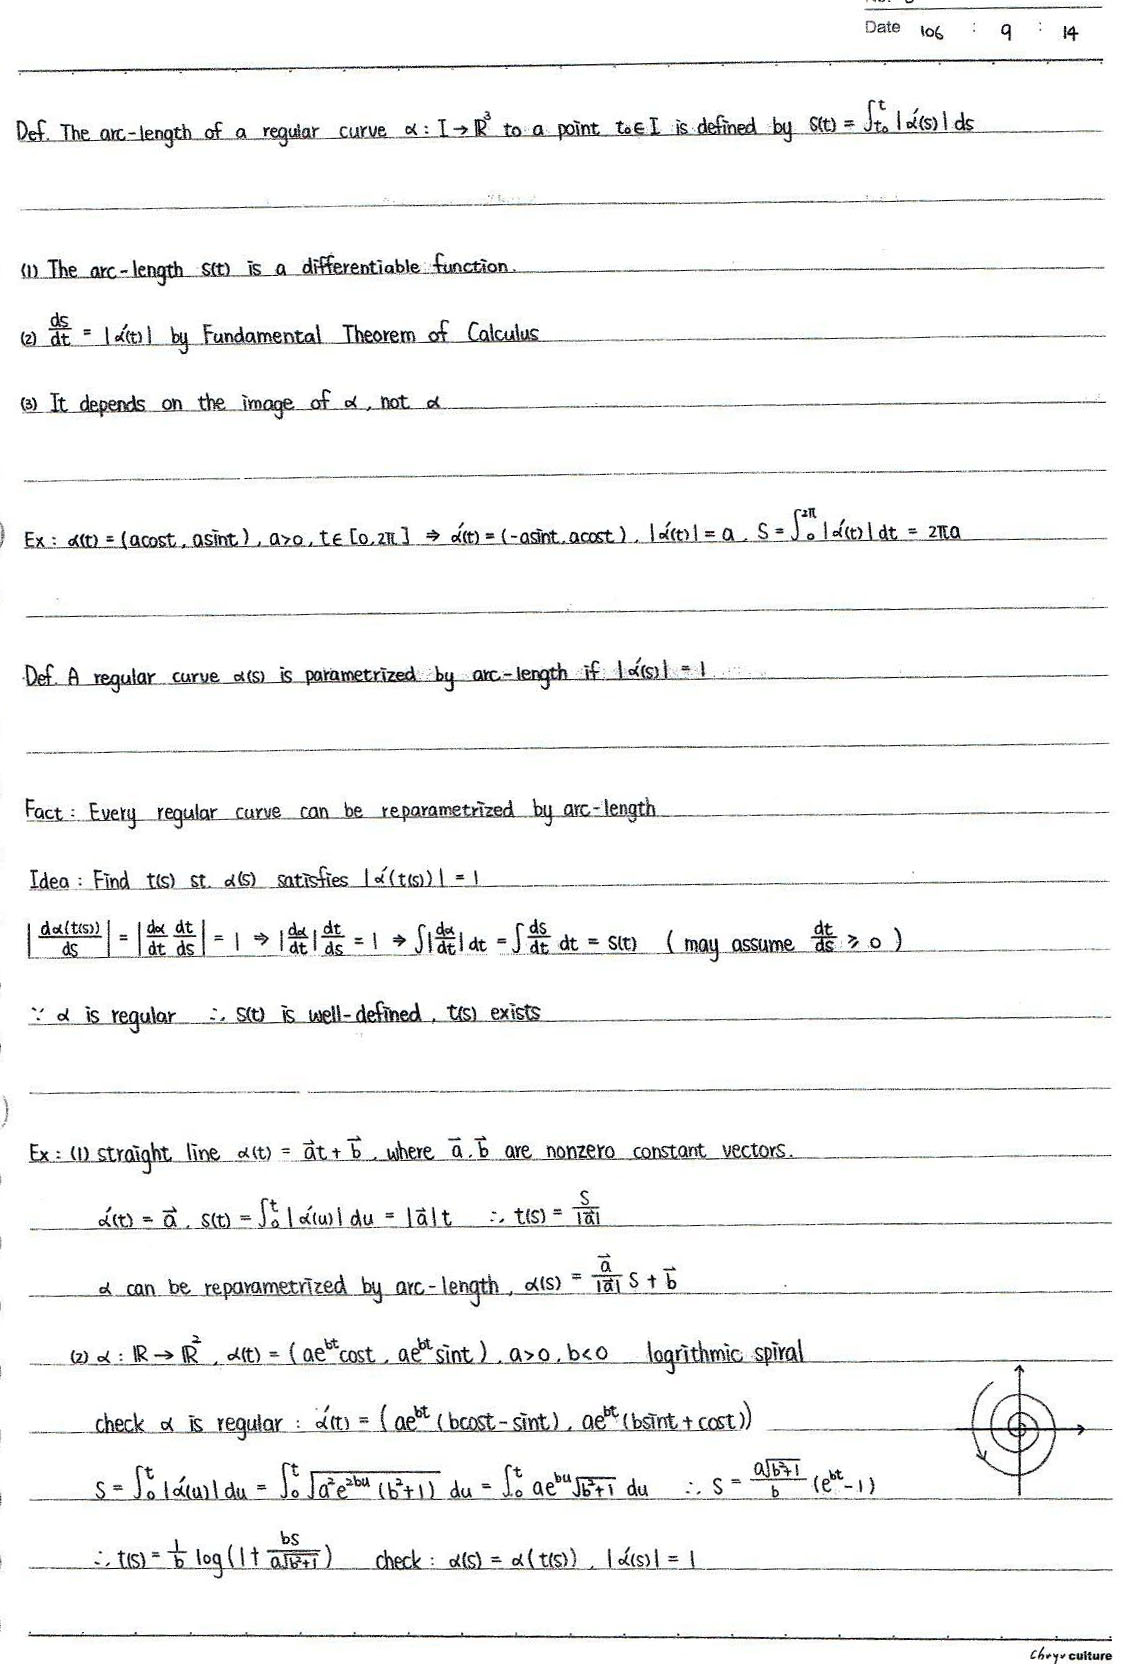 Date 106 : 9 : 14
Def. The arc-length of a regular curve α : I → ℝ³ to a point t₀ ∈ I is defined by S(t) = ∫_{t₀}^{t} |α′(s)| ds
(1) The arc-length S(t) is a differentiable function.
(2) ds/dt = |α′(t)| by Fundamental Theorem of Calculus
(3) It depends on the image of α, not α
Ex : α(t) = (acost, asint), a>0, t ∈ [0, 2π] ⇒ α′(t) = (-asint, acost), |α′(t)| = a, S = ∫_0^{2π} |α′(t)| dt = 2πa
Def. A regular curve α(s) is parametrized by arc-length if |α′(s)| = 1
Fact : Every regular curve can be reparametrized by arc-length
Idea : Find t(s) st. α(s) satisfies |α′(t(s))| = 1
|dα(t(s))/ds| = |dα/dt dt/ds| = 1 ⇒ |dα/dt| dt/ds = 1 ⇒ ∫|dα/dt| dt = ∫ ds/dt dt = S(t) ( may assume dt/ds ≥ 0 )
∵ α is regular ∴ S(t) is well-defined, t(s) exists
Ex : (1) straight line α(t) = a⃗t + b⃗, where a⃗, b⃗ are nonzero constant vectors.
α′(t) = a⃗, S(t) = ∫_0^t |α′(u)| du = |a⃗|t ∴ t(s) = S/|a⃗|
α can be reparametrized by arc-length, α(s) = a⃗/|a⃗| S + b⃗
(2) α : ℝ → ℝ², α(t) = (ae^{bt}cost, ae^{bt}sint), a>0, b<0 logrithmic spiral
check α is regular : α′(t) = (ae^{bt}(bcost-sint), ae^{bt}(bsint+cost))
S = ∫_0^t |α′(u)| du = ∫_0^t √(a²e^{2bu}(b²+1)) du = ∫_0^t ae^{bu}√(b²+1) du ∴ S = a√(b²+1)/b (e^{bt}-1)
∴ t(s) = 1/b log(1+ bs/(a√(b²+1))) check : α(s) = α(t(s)), |α′(s)| = 1
culture